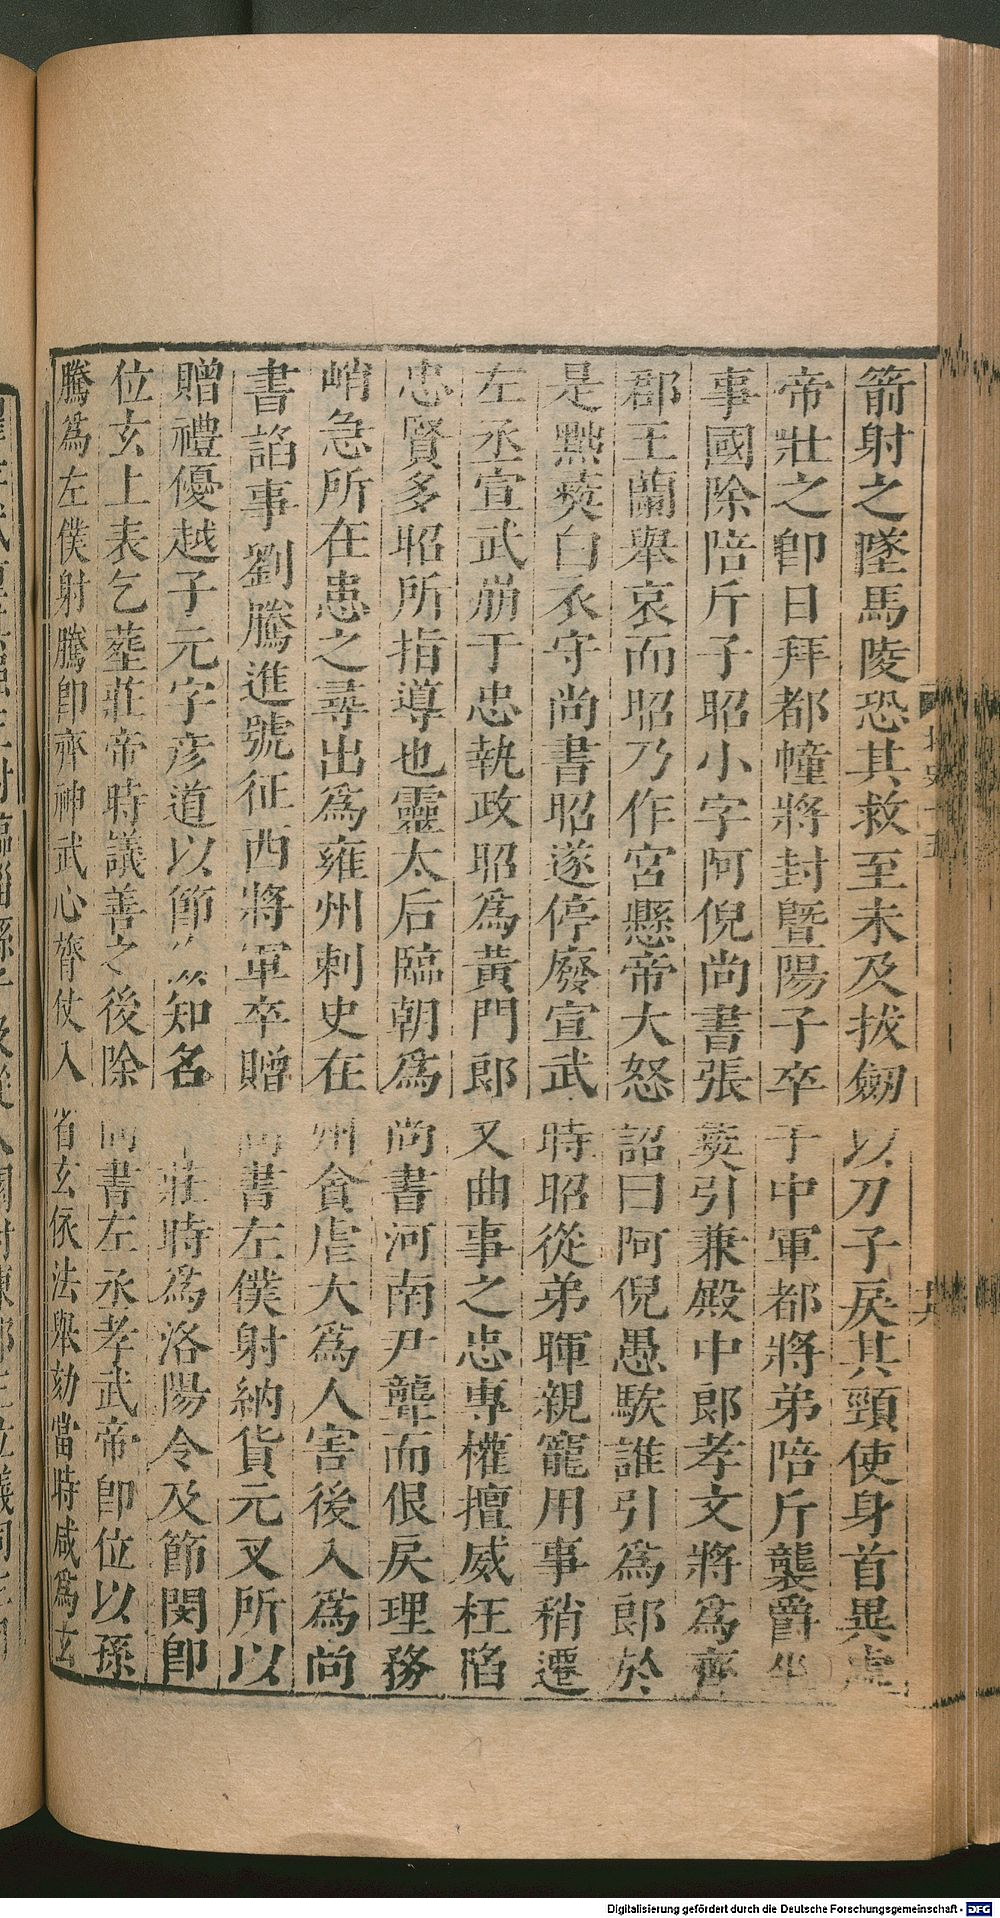 箭射之墜馬陵恐其救至未及拔劔以刀子戾其頸使身首異處
帝壯之即日拜都幢將封暨陽子卒于中軍都將弟陪斤襲爵坐
事國除陪斤子昭小字阿倪尚書張彛引兼殿中郎孝文將爲齊
郡王蘭舉哀而昭乃作宮懸帝大怒詔曰阿倪愚騃誰引爲郎於
是黜彛白衣守尚書昭遂停廢宣武時昭從弟暉親寵用事稍遷
左丞宣武崩于忠執政昭爲黃門郎又曲事之忠專權擅威枉陷
忠賢多昭所指導也靈太后臨朝爲尚書河南尹聾而佷戾理務
峭急所在患之尋出爲雍州刺史在州貪虐大爲人害後入爲尚
書諂事劉騰進號征西將軍卒贈尚書左僕射納貨元叉所以
贈禮優越子元字彦道以節 知名 莊時爲洛陽令及節閔即
位玄上表乞塟莊帝時議善之後除尚書左丞孝武帝即位以孫
騰爲左僕射騰即齊神武心膂仗入省玄依法舉劾當時咸爲玄
北史十五
Digitalisierung gefördert durch die Deutsche Forschungsgemeinschaft - DFG